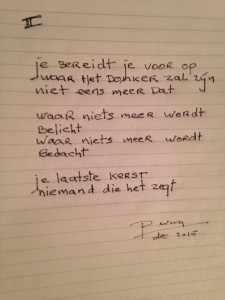 II
je BEREIDT je VOOR OP
WAAR HET DONKER ZAL ZIJN
NIET EENS MEER DAT
WAAR NIETS MEER WORDT
BELICHT
WAAR NIETS MEER WORDT
BEDACHT
je LAATSTE KERST
NIEMAND DIE HET ZEGT
dec 2015